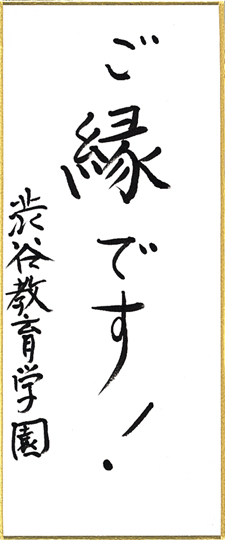 ご縁です!
渋谷教育学園